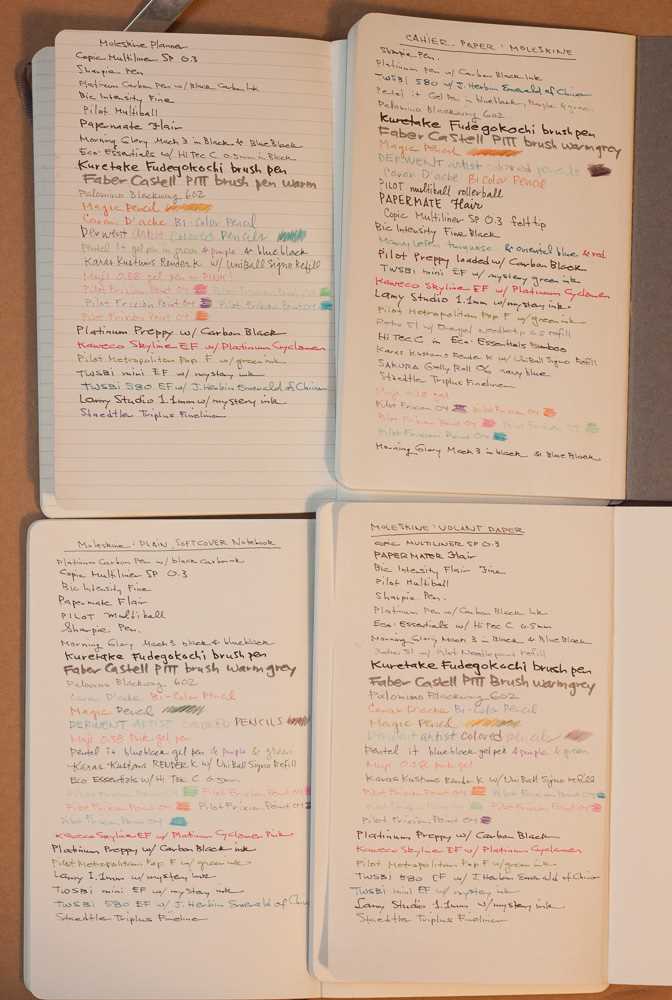 Moleskine Planner
Copic Multiliner SP 0.3
Sharpie Pen
Platinum Carbon Pen w/Black Carbon Ink
Bic Intensity Fine
Pilot Multiball
Papermate Flair
Morning Glory Mach 3 in Black & Blue Black
Eco-Essentials w/ Hi Tec C 0.5mm in Black
Kuretake Fudegokochi brush pen
Faber Castell PITT brush pen warm
Palomino Blackwing 602
Magic Pencil
Caran D'ache Bi-Color Pencil
Derwent Artist Colored Pencils
Pentel it gel pen in green & purple & blue black
Karas Kustoms Render K w/ UniBall Signo Refill
Muji 0.38 gel pen in Pink
Pilot Frixion Point 04
Pilot Frixion Point 04 Pilot Frixion Point 04
Pilot Frixion Point 04
Platinum Preppy w/ Carbon Black
Kaweco Skyline EF w/ Platinum Cyclamen
Pilot Metropolitan Pop F w/ green ink
TWSBI mini EF w/ mystery ink
TWSBI 580 EF w/ J. Herbin Emerald of Chivor
Lamy Studio 1.1mm w/ mystery ink
Staedtler Triplus Fineliner
CAHIER PAPER: MOLESKINE
Sharpie Pen
Platinum Pen w/ Carbon Black Ink
TWSBI 580 w/ J. Herbin Emerald of Chivor
Pentel it Gel Pen in blueblack, Purple & green
Palomino Blackwing 602
Kuretake Fudegokochi brush pen
Faber Castell PITT brush warm grey
Magic Pencil
DERWENT artist colored pencils
Caran D'ache Bi Color Pencil
PILOT multiball rollerball
PAPERMATE Flair
Copic Multiliner SP 0.3 felt tip
Bic Intensity Fine Black
turquoise & oriental blue & red
Pilot Preppy loaded w/ Carbon Black
TWSBI mini EF w/ mystery green ink
Kaweco Skyline EF w/ Platinum Cyclamen
Lamy Studio 1.1mm w/mystery ink
Pilot Metropolitan Pop F w/ green ink
Retro 51 w/ needletip refill
Hi Tec C in Eco-Essentials bamboo
Karas Kustoms Render K w/ UniBall Signo Refill
SAKURA Gelly Roll 06 navy blue
Staedtler Triplus Fineliner
Muji 0.38 gel
Pilot Frixion 04 Pilot Frixion Point 04
Pilot Frixion Point 04 Pilot Frixion 04
Pilot Frixion Point 04
Morning Glory Mach 3 in black & Blue Black
Moleskine: PLAIN, SOFTCOVER Notebook
Platinum Carbon Pen w/ black carbon ink
Copic Multiliner SP 0.3
Bic Intensity Fine
Papermate Flair
PILOT Multiball
Sharpie Pen.
Morning Glory Mach 3 black & blueblack
Kuretake Fudegokochi brush pen
Faber Castell PITT brush warm grey
Palomino Blackwing 602
Caran D'ache Bi-Color Pencil
Magic Pencil
DERWENT ARTIST COLORED PENCILS
Muji 0.38 Pink gel pen
Pentel it blueblack gel pen & purple & green
Karas Kustoms RENDER K w/ UniBall Signo Refill
Eco Essentials w/ Hi Tec C 0.5mm
Pilot Frixion Point 04 Pilot Frixion Point 04
Pilot Frixion Point 04 Pilot Frixion Point 04
Pilot Frixion Point 04
Kaweco Skyline EF w/ Platinum Cyclamen Pink
Platinum Preppy w/ Carbon Black ink
Pilot Metropolitan Pop F w/ green ink
Lamy 1.1mm w/ mystery ink
TWSBI mini EF w/ mystery ink
TWSBI 580 EF w/ J. Herbin Emerald of Chiv
Staedtler Triplus Fineliner
MOLESKINE: VOLANT PAPER
COPIC MULTILINER SP 0.3
PAPERMATE Flair
Bic Intensity Flair Fine
Pilot Multiball
Sharpie Pen.
Platinum Pen w/ Carbon Black Ink
Eco-Essentials w/ Hi Tec C 0.5mm
Morning Glory Mach 3 in Black & Blue Black
51 w/ Pilot Needlepoint Refill
Kuretake Fudegokochi brush pen
Faber Castell PITT Brush warm grey
Palomino Blackwing 602
Caran D'ache Bi-Color Pencil
Magic Pencil
Derwent artist colored pencils
Pentel it blueblack gel pen & purple & green
Muji 0.38 pink gel
Karas Kustoms Render K w/ UniBall Signo Refill
Pilot Frixion Point 04 Pilot Frixion Point 04
Pilot Frixion Point 04 Pilot Frixion Point 04
Pilot Frixion Point 04
Platinum Preppy w/ Carbon Black
Kaweco Skyline EF w/ Platinum Cyclamen
Pilot Metropolitan Pop F w/ green ink
TWSBI 580 EF w/ J. Herbin Emerald of Chivor
TWSBI mini EF w/ mystery ink
Lamy Studio 1.1mm w/ mystery ink
Staedtler Triplus Fineliner